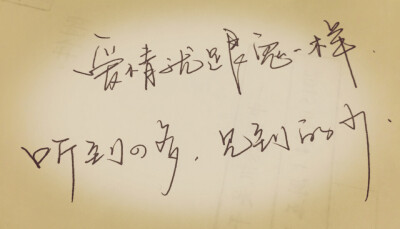 爱情就跟鬼一样
听到的多，见到的少.